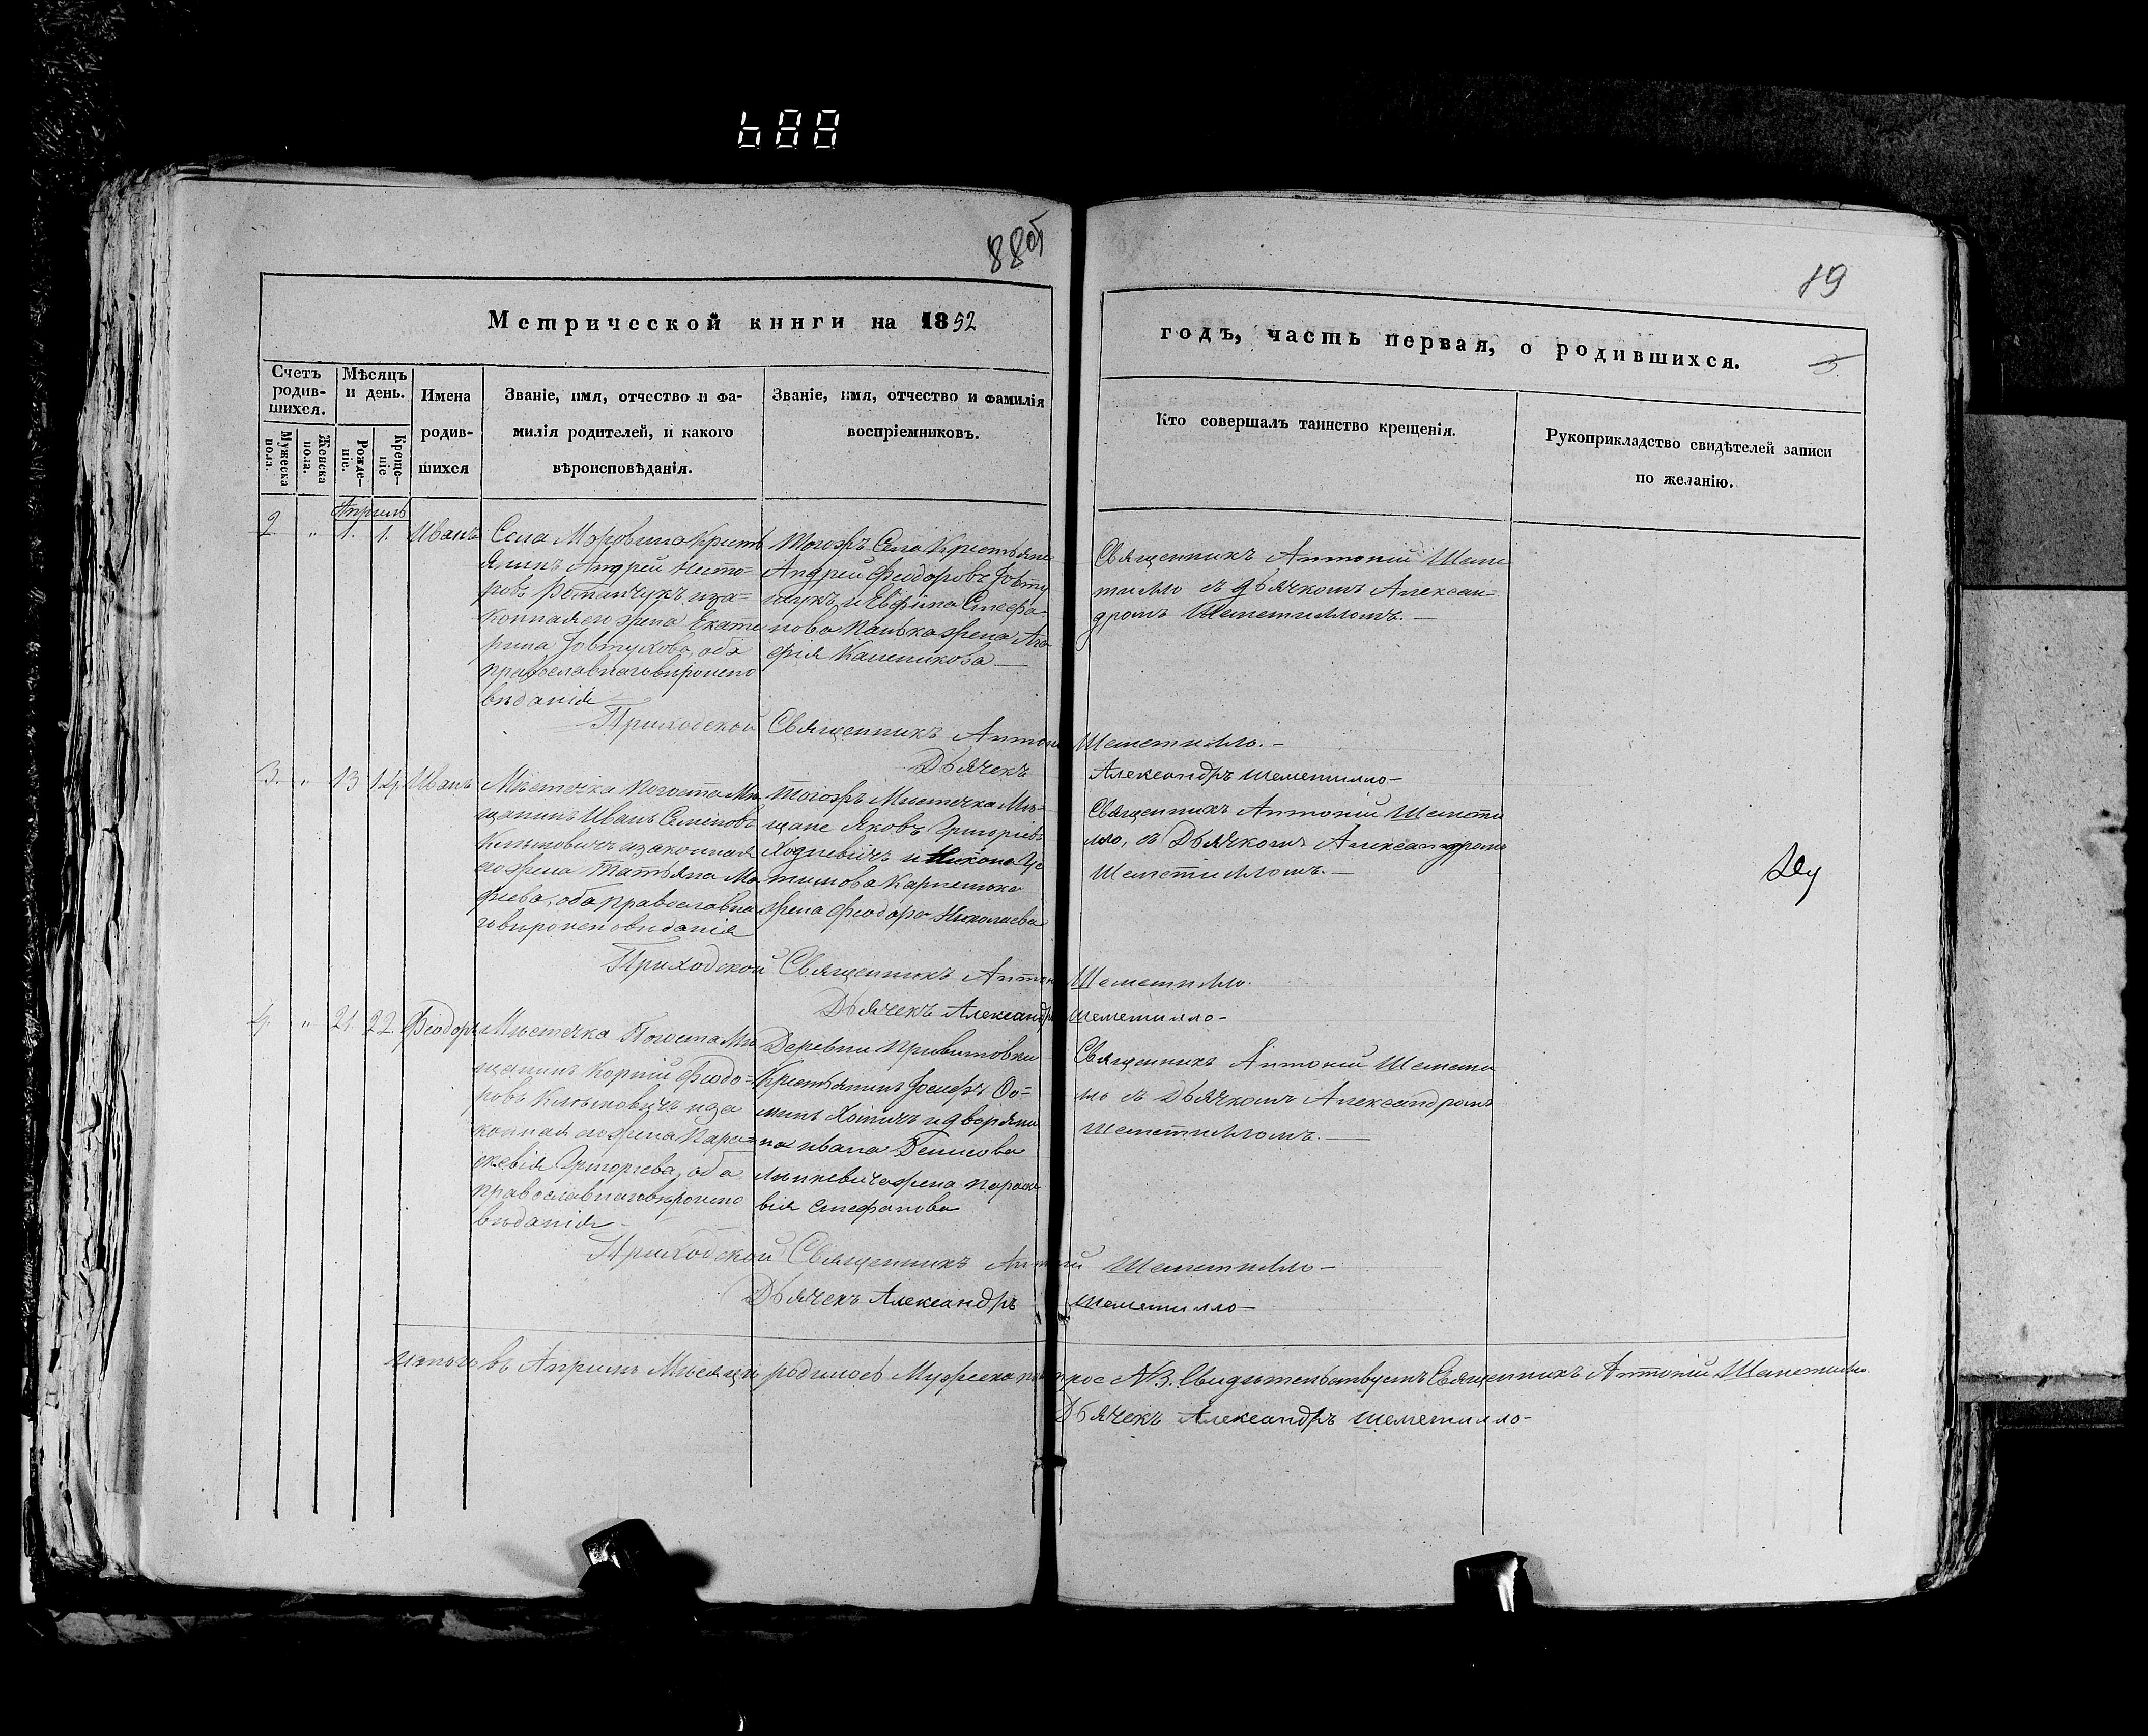 688
88 об
89
Метрической книги на 1852
годъ, часть первая, о родившихся.
Счетъ родив-шихся.
Мѣсяцъ и день.
Имена родив-шихся
Званіе, имя, отчество и фа-
милія родителей, и какого
вѣроисповѣданія.
Званіе, имя, отчество и фамилія
воспріемниковъ.
Кто совершалъ таинство крещенія.
Рукоприкладство свидѣтелей записи
по желанію.
Мужеска пола.
Женска пола.
Рожде-ніе.
Креще-ніе
Апрель
2 " 1. 1. Иванъ
Села Моровина Кресть
янинъ Андрей Несто-
ровъ иза-
конная его жена Екате
рина Іовтухова, оба
православнаго вироиспо
виданія
Тогожъ Села Крестьяне
Андрей Феодоровъ Іовту
и Евфима Стефа-
нова жена Ага
фія
Священникъ Антоній Шеме
тилло съ дьячкомъ Алексан-
дромъ Шеметилломъ. —
Приходской Священникъ Антоній Шеметилло. —
Дьячекъ Александръ Шеметилло —
3. " 13 14 Иванъ
Мѣстечка Погоста Мѣ
щанинъ Иванъ Семеновъ
Климовичъ изаконная
его жена Татьяна Ма
фіева, оба православна
го вироисповиданія
Тогожъ Мѣстечка Мѣ-
щане Яковъ Григоріевъ
Ходневичъ и
тинова
жена Феодора Николаева
Священникъ Антоній Шемети
лло, съ Дьячкомъ Александромъ
Шеметилломъ. —
Приходской Священникъ Антоній Шеметилло.
Дьячекъ Александръ Шеметилло —
4. " 21 22 Феодоръ
Мѣстечка Погоста Мѣ
щанинъ Корній Феодо-
ровъ Климовичъ иза
конная его жена Пара-
скевія Григорьева, оба
православнаго вѣроиспо
виданія —
Деревни
Крестьянинъ Іосифъ Ѳо-
минъ и дворяни
на Ивана
жена Параске
вія Стефанова
Священникъ Антоній Шемети
лло съ Дьячкомъ Александромъ
Шеметилломъ. —
Приходской Священникъ Антоній Шеметилло —
Дьячекъ Александръ Шеметилло —
Итого въ Априлѣ Мѣсяцѣ родилось Мужеска пола трое №3. Свидѣтельствуетъ Священникъ Антоній Шеметилло
Дьячекъ Александръ Шеметилло —